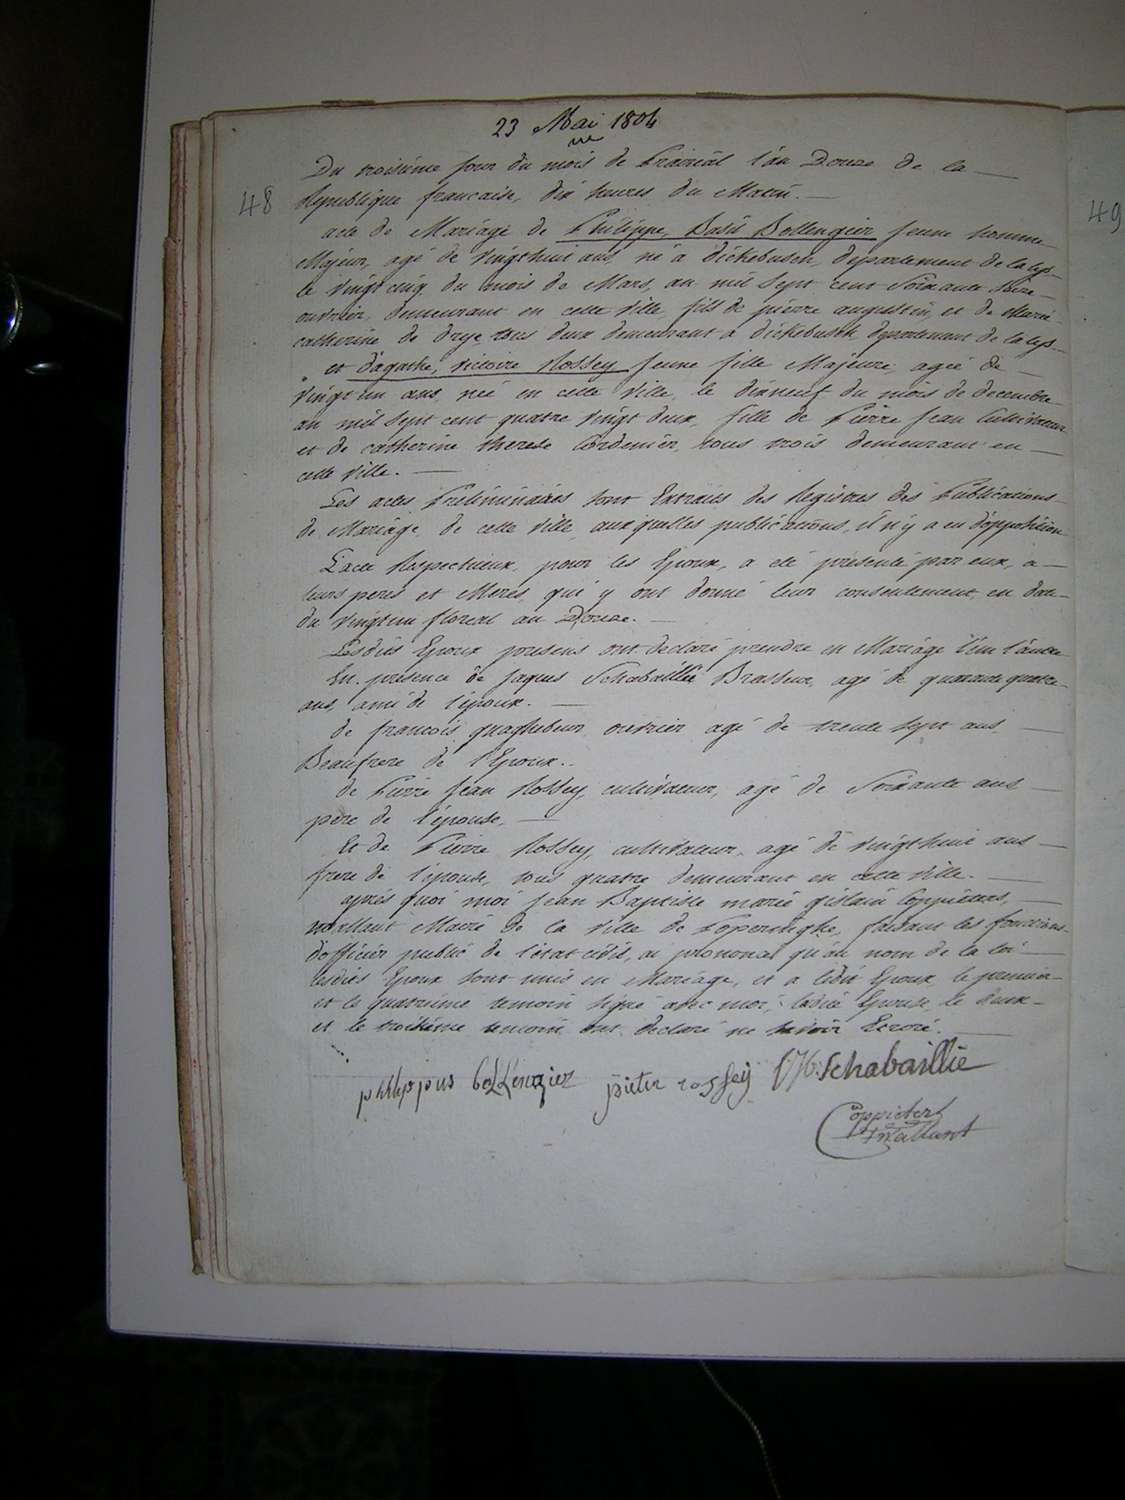 23 Mai 1804
48
49
Du troisième jour du mois de Prairéal l'an Douze de la
République francaise, dix heures du Matin.
acte de Mariage de Philippe Basil Bollengier jeune homme
Majeur, agé de vingthuit ans né à Dickebusch, département de la Lys
le vingt cinq du mois de Mars, an mil sept cent soixante seize
ouvrier, demeurant en cette ville, fils de pierre augustin, et de Marie
catherine de drye tous deux demeurant à dickebusch département de la Lys
et d'agathe, victoire Rossey jeune fille Majeure, agée de
vingt un ans, née en cette ville, le dixneuf du mois de decembre
an mil sept cent quatre vingt deux, fille de Pierre Jean Cultivateur
et de catherine therese Cordenier, tous trois demeurant en
cette ville.
Les actes Préliminaires sont Extraits des Registres des Publications
de Mariage de cette ville, auxquelles publications, il n'y a eu d'opposition
L'acte Respectueux, pour les Epoux, a été présenté par eux, a
leurs peres et Meres, qui y ont donné leur consentement, en date
du vingt un floreal an Douze.
Lesdits Epoux presens ont declaré prendre en Mariage l'un l'autre
En présence de Jaques Schabaillie Brasseur, agé de quarante quatre
ans, ami de l'époux.
de francois quaghebeur ouvrier agé de trente sept ans
Beaufrere de l'Epoux.
de Pierre Jean Rossey, cultivateur, agé de Soixante ans
père de l'épouse,
Et de Pierre Rossey, cultivateur, agé de vingthuit ans
frere de l'épouse, tous quatre demeurant en cette ville.
après quoi moi Jean Baptiste marie gislain Coppieters,
mallant Maire de la ville de Poperinghe, faisant les fonctions
d'officier public de l'état civil, ai prononcé qu'au nom de la loi
lesdits Epoux sont unis en Mariage, et a ledit Epoux, le premier
et le quatrième temoin signé avec moi, ladite Epouse, le deux
et le troisième temoin ont declaré ne savoir Ecrire.
philippus boLLengier pieter rossey J:N: Schabaillie
Coppieters
mallant